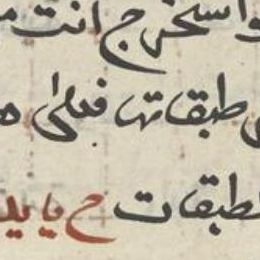 واستخرج انت
طبقاتها فعلى
لطبقات ح